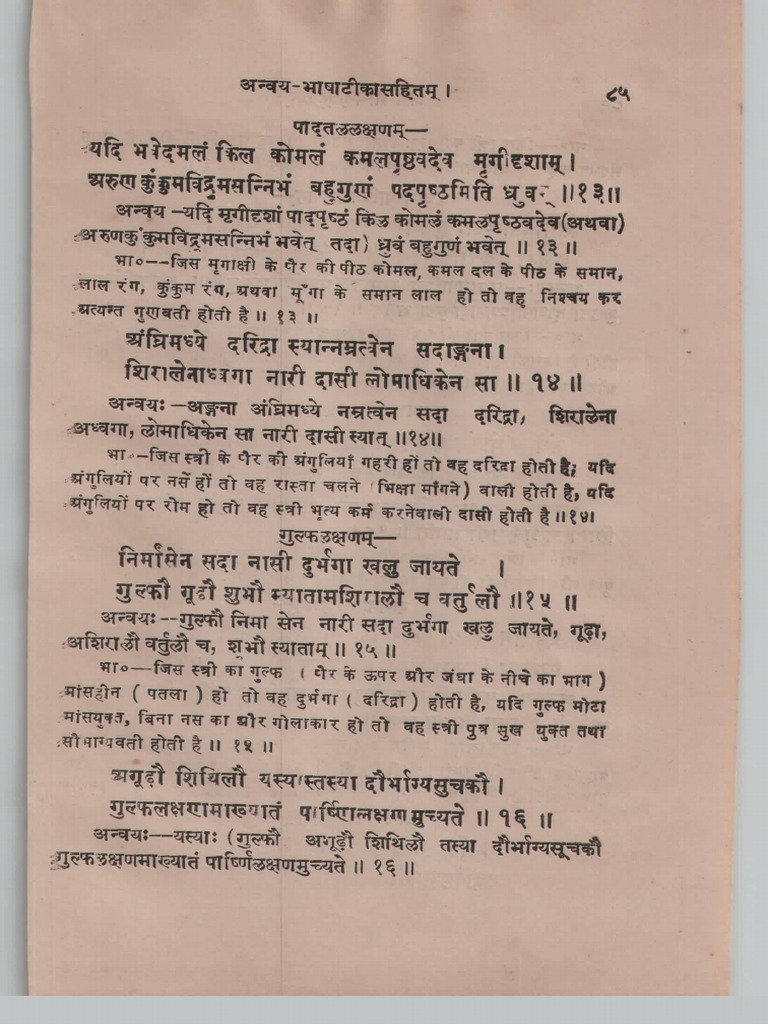 अन्वय-भाषाटीकासहितम् । ८५
पादतललक्षणम्—
यदि भवेदमलं किल कोमलं कमलपृष्ठवदेव मृगीदृशाम् ।
अरुणकुंकुमविद्रुमसन्निभं बहुगुणं पदपृष्ठमिति ध्रुवम् ॥१३॥
अन्वय –यदि मृगीदृशां पादपृष्ठं किल कोमलं कमलपृष्ठवदेव(अथवा)
अरुणकुंकुमविद्रुमसन्निभं भवेत् तदा) ध्रुवं बहुगुणं भवेत् ॥ १३ ॥
भा०—जिस मृगाक्षी के पैर की पीठ कोमल, कमल दल के पीठ के समान,
लाल रंग, कुंकुम रंग, अथवा मूँगा के समान लाल हो तो वह निश्चय कर
अत्यन्त गुणवती होती है ॥ १३ ॥
अंघ्रिमध्ये दरिद्रा स्यान्नम्रत्वेन सदाङ्गना ।
शिरालेनाध्वगा नारी दासी लोमाधिकेन सा ॥ १४ ॥
अन्वयः —अङ्गना अंघ्रिमध्ये नम्रत्वेन सदा दरिद्रा, शिरालेना
अध्वगा, लोमाधिकेन सा नारी दासी स्यात् ॥१४॥
भा०–जिस स्त्री के पैर की अंगुलियाँ गहरी हों तो वह दरिद्रा होती है; यदि
अंगुलियों पर नसें हों तो वह रास्ता चलने (भिक्षा माँगने) वाली होती है, यदि
अंगुलियों पर रोम हो तो वह स्त्री भृत्य कर्म करनेवाली दासी होती है ॥१४।
गुल्फलक्षणम्—
निर्मांसेन सदा नासी दुर्भगा खलु जायते ।
गुल्फौ गूढौ शुभौ स्यातामशिरालौ च वर्तुलौ ॥१५ ॥
अन्वयः--गुल्फौ निमा सेन नारी सदा दुर्भगा खलु जायते, गूढा,
अशिरालौ वर्तुलौ च, शुभौ स्याताम् ॥ १५ ॥
भा०—जिस स्त्री का गुल्फ ( पैर के ऊपर और जंघा के नीचे का भाग )
मांसहीन ( पतला ) हो तो वह दुर्भगा ( दरिद्रा ) होती है, यदि गुल्फ मोटा
मांसयुक्त, बिना नस का और गोलाकार हो तो वह स्त्री पुत्र सुख युक्त तथा
सौभाग्यवती होती है ॥ १५ ॥
अगूढौ शिथिलौ यस्यास्तस्या दौर्भाग्यसुचकौ ।
गुल्फलक्षणमाख्यातं पार्ष्णिलक्षणमुच्यते ॥ १६ ॥
अन्वयः—यस्याः (गुल्फौ अगूढौ शिथिलौ तस्या दौर्भाग्यसूचकौ
गुल्फलक्षणमाख्यातं पार्ष्णिलक्षणमुच्यते ॥ १६ ॥